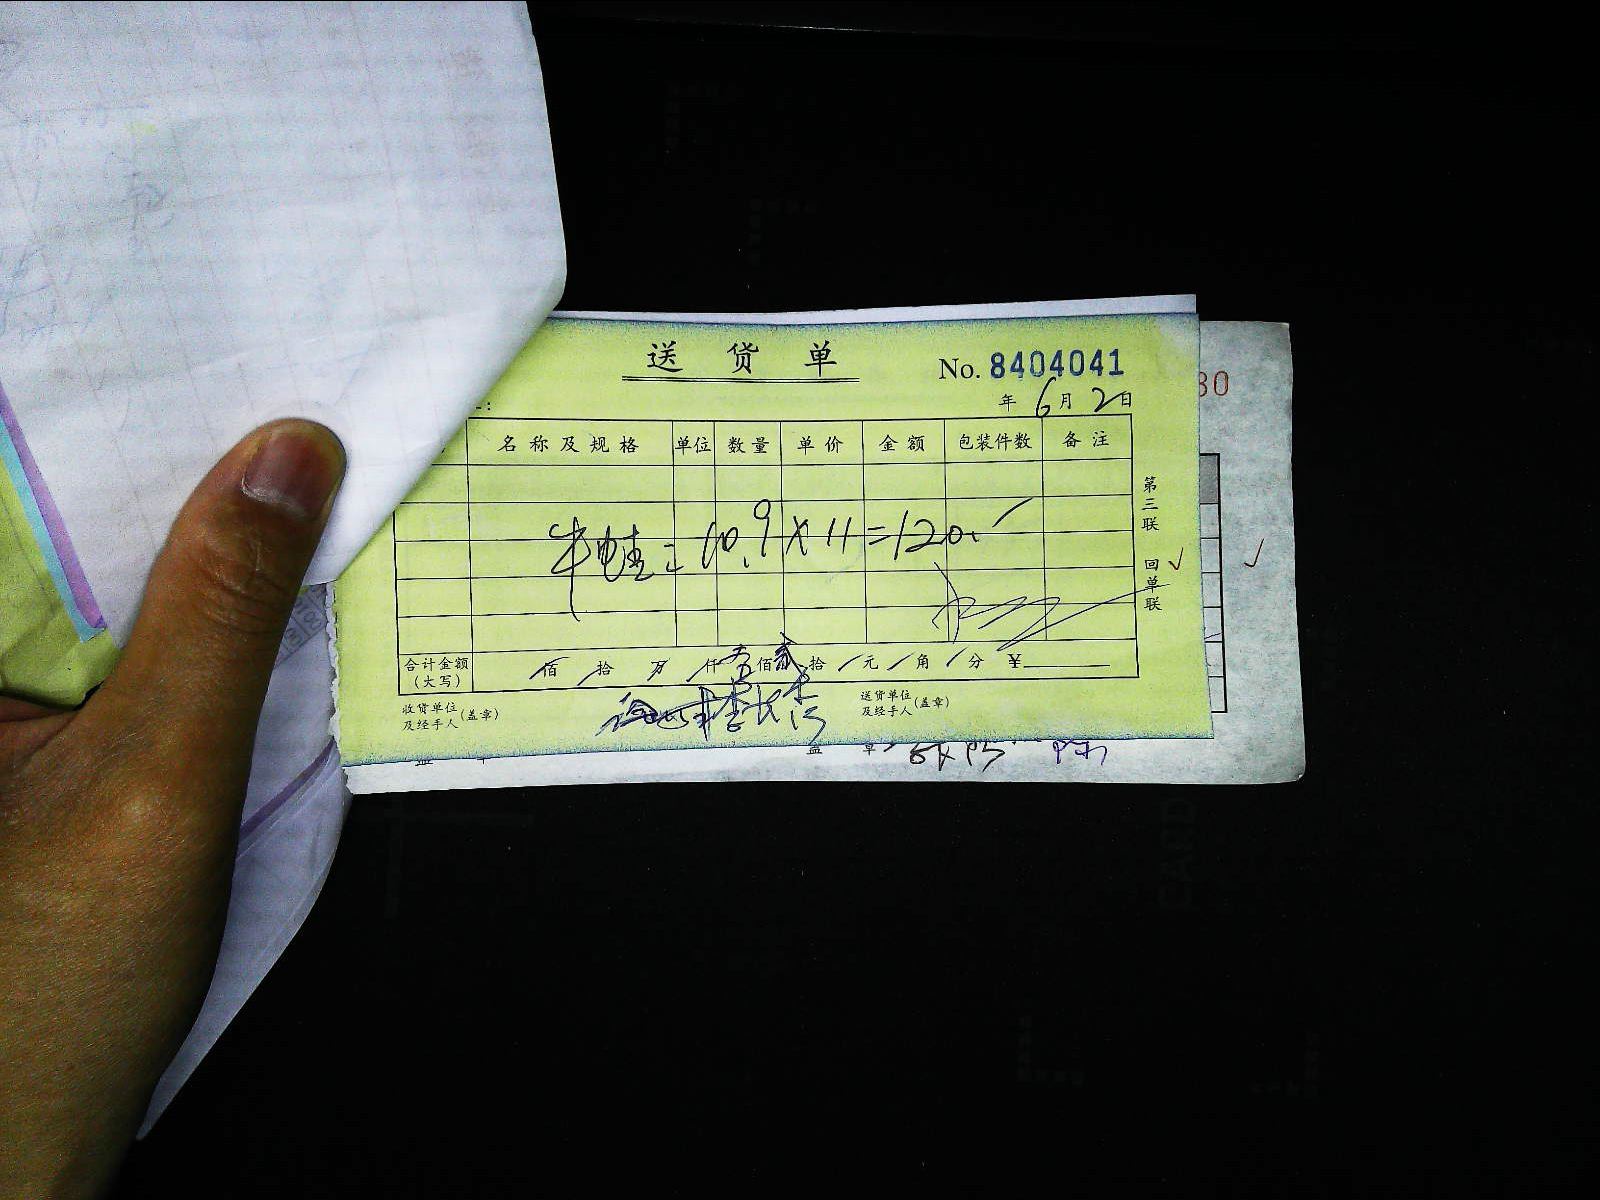 送货单
No. 8404041
年 6月 2日
名称及规格 单位 数量 单价 金额 包装件数 备注
牛蛙=10.9×11=120.
合计金额(大写) 佰 拾 万 仟 佰 贰拾 元 角 分 ¥
收货单位及经手人(盖章)
送货单位及经手人(盖章)
第三联 回单联
30